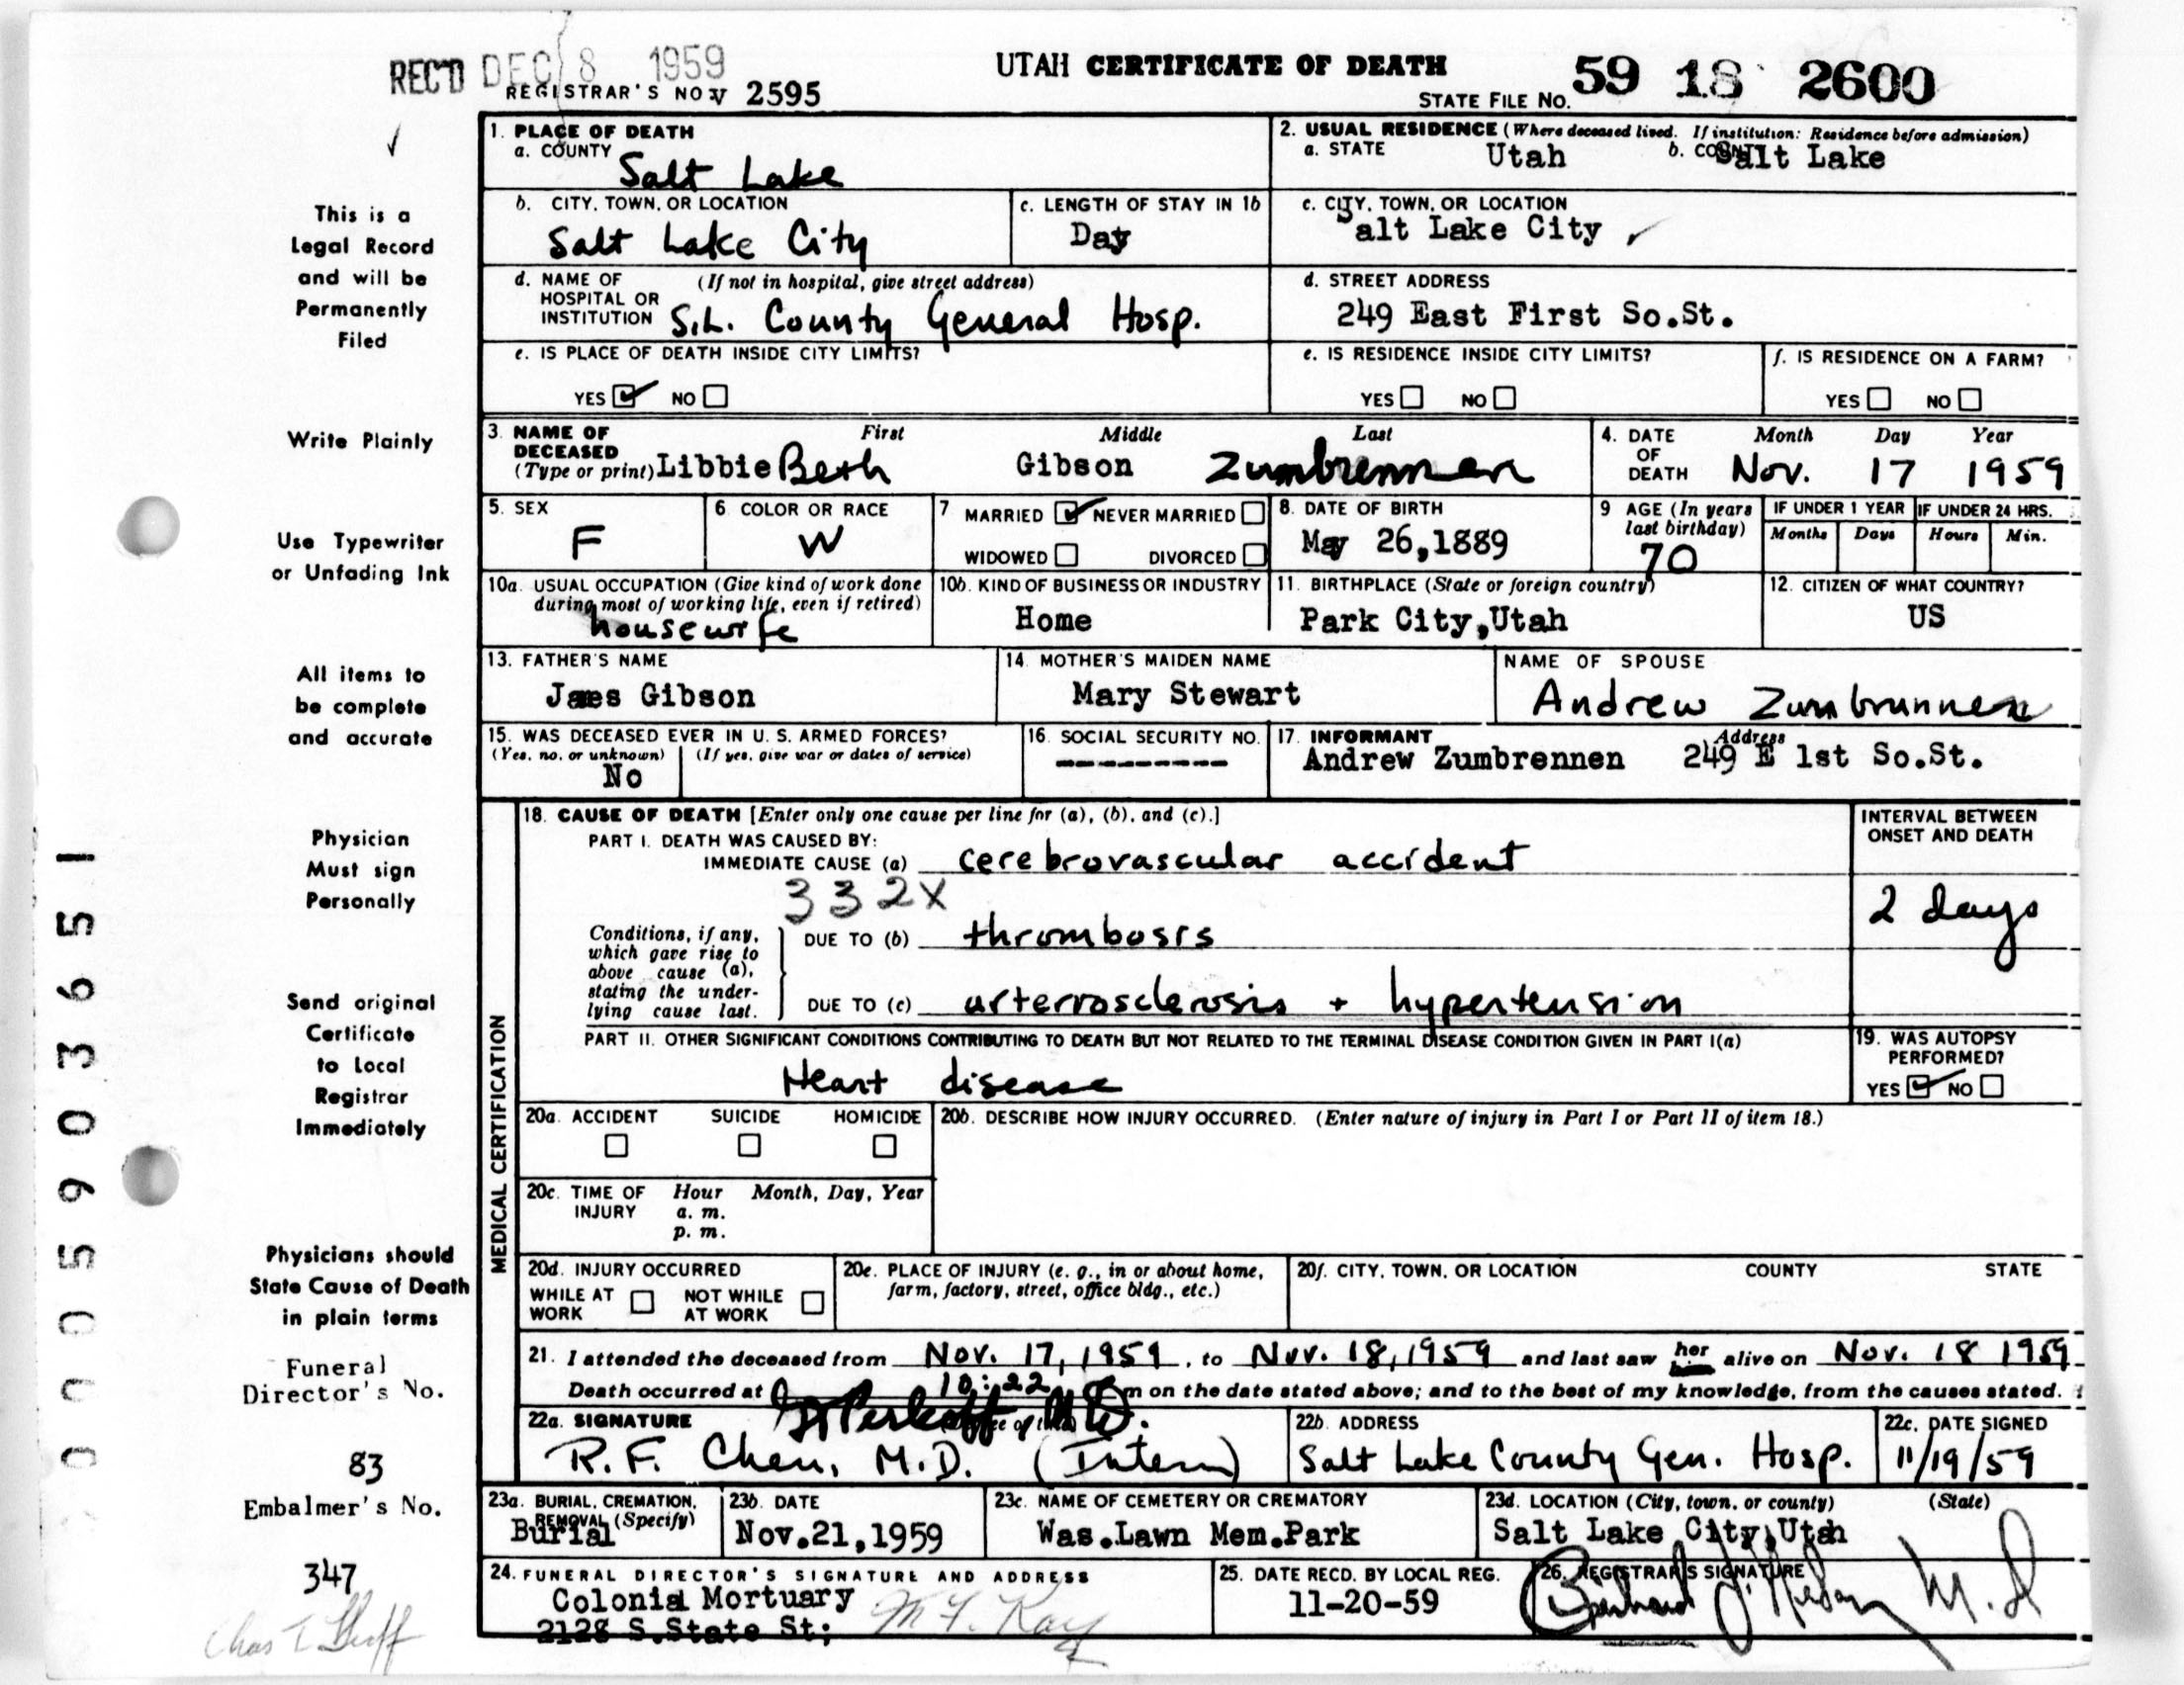 REC'D DEC 8 1959
UTAH CERTIFICATE OF DEATH
REGISTRAR'S NO. 2595
STATE FILE No. 59 18 2600
This is a
Legal Record
and will be
Permanently
Filed
Write Plainly
Use Typewriter
or Unfading Ink
All items to
be complete
and accurate
Physician
Must sign
Personally
Send original
Certificate
to Local
Registrar
Immediately
Physicians should
State Cause of Death
in plain terms
Funeral
Director's No.
83
Embalmer's No.
347
1. PLACE OF DEATH
a. COUNTY Salt Lake
2. USUAL RESIDENCE (Where deceased lived. If institution: Residence before admission)
a. STATE Utah b. COUNTY Salt Lake
b. CITY, TOWN, OR LOCATION
Salt Lake City
c. LENGTH OF STAY IN 1b
Day
c. CITY, TOWN, OR LOCATION
Salt Lake City
d. NAME OF (If not in hospital, give street address)
HOSPITAL OR
INSTITUTION S.L. County General Hosp.
d. STREET ADDRESS
249 East First So.St.
e. IS PLACE OF DEATH INSIDE CITY LIMITS?
YES NO
e. IS RESIDENCE INSIDE CITY LIMITS?
YES NO
f. IS RESIDENCE ON A FARM?
YES NO
3. NAME OF First Middle Last
DECEASED
(Type or print) Libbie Beth Gibson Zumbrennen
4. DATE Month Day Year
OF
DEATH Nov. 17 1959
5. SEX
F
6. COLOR OR RACE
W
7 MARRIED NEVER MARRIED
WIDOWED DIVORCED
8. DATE OF BIRTH
May 26,1889
9 AGE (In years
last birthday)
70
IF UNDER 1 YEAR IF UNDER 24 HRS.
Months Days Hours Min.
10a. USUAL OCCUPATION (Give kind of work done
during most of working life, even if retired)
housewife
10b. KIND OF BUSINESS OR INDUSTRY
Home
11. BIRTHPLACE (State or foreign country)
Park City,Utah
12. CITIZEN OF WHAT COUNTRY?
US
13. FATHER'S NAME
James Gibson
14. MOTHER'S MAIDEN NAME
Mary Stewart
NAME OF SPOUSE
Andrew Zumbrunnen
15. WAS DECEASED EVER IN U. S. ARMED FORCES?
(Yes, no, or unknown) (If yes, give war or dates of service)
No
16. SOCIAL SECURITY NO.
---------
17. INFORMANT Address
Andrew Zumbrennen 249 E 1st So.St.
MEDICAL CERTIFICATION
18. CAUSE OF DEATH [Enter only one cause per line for (a), (b), and (c).]
INTERVAL BETWEEN
ONSET AND DEATH
PART I. DEATH WAS CAUSED BY:
IMMEDIATE CAUSE (a) cerebrovascular accident
332X
2 days
Conditions, if any,
which gave rise to
above cause (a),
stating the under-
lying cause last.
DUE TO (b) thrombosis
DUE TO (c) arteriosclerosis + hypertension
PART II. OTHER SIGNIFICANT CONDITIONS CONTRIBUTING TO DEATH BUT NOT RELATED TO THE TERMINAL DISEASE CONDITION GIVEN IN PART I(a)
Heart disease
19. WAS AUTOPSY
PERFORMED?
YES NO
20a. ACCIDENT SUICIDE HOMICIDE
20b. DESCRIBE HOW INJURY OCCURRED. (Enter nature of injury in Part I or Part II of item 18.)
20c. TIME OF Hour Month, Day, Year
INJURY a. m.
p. m.
20d. INJURY OCCURRED
WHILE AT NOT WHILE
WORK AT WORK
20e. PLACE OF INJURY (e. g., in or about home,
farm, factory, street, office bldg., etc.)
20f. CITY, TOWN, OR LOCATION COUNTY STATE
21. I attended the deceased from Nov. 17, 1959, to Nov. 18, 1959 and last saw her alive on Nov. 18 1959
Death occurred at 10:22 m on the date stated above; and to the best of my knowledge, from the causes stated.
22a. SIGNATURE
Perkoff M.D.
R.F. Chen, M.D. (Intern)
22b. ADDRESS
Salt Lake County Gen. Hosp.
22c. DATE SIGNED
11/19/59
23a. BURIAL, CREMATION,
REMOVAL (Specify)
Burial
23b. DATE
Nov.21,1959
23c. NAME OF CEMETERY OR CREMATORY
Was.Lawn Mem.Park
23d. LOCATION (City, town, or county) (State)
Salt Lake City,Utah
24. FUNERAL DIRECTOR'S SIGNATURE AND ADDRESS
Colonial Mortuary
2128 S.State St; M F. Kay
25. DATE RECD. BY LOCAL REG.
11-20-59
26. REGISTRAR'S SIGNATURE
M.D
Chas T
0005903651